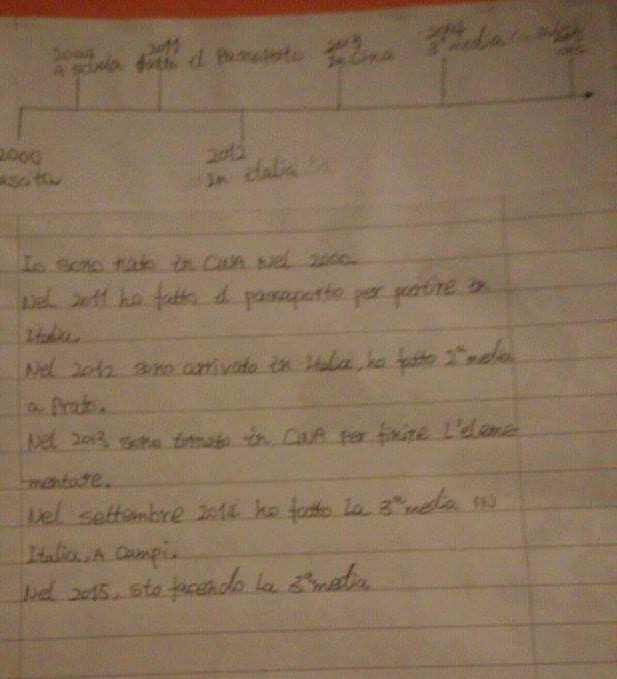 2011
2013
2014
a scuola fatto il passaporto In Cina 3ª media
2000 2012
In Italia
Io sono nato in CINA Nel 2000.
Nel 2011 ho fatto il passaporto per partire in
Italia.
Nel 2012 sono arrivato in Italia, ho fatto 2ª media
a Prato.
Nel 2013 sono tornato in CINA per finire L'eleme-
mentare.
Nel settembre 2014 ho fatto La 3ª media IN
Italia, A Campi.
Nel 2015, sto facendo La 3ª media